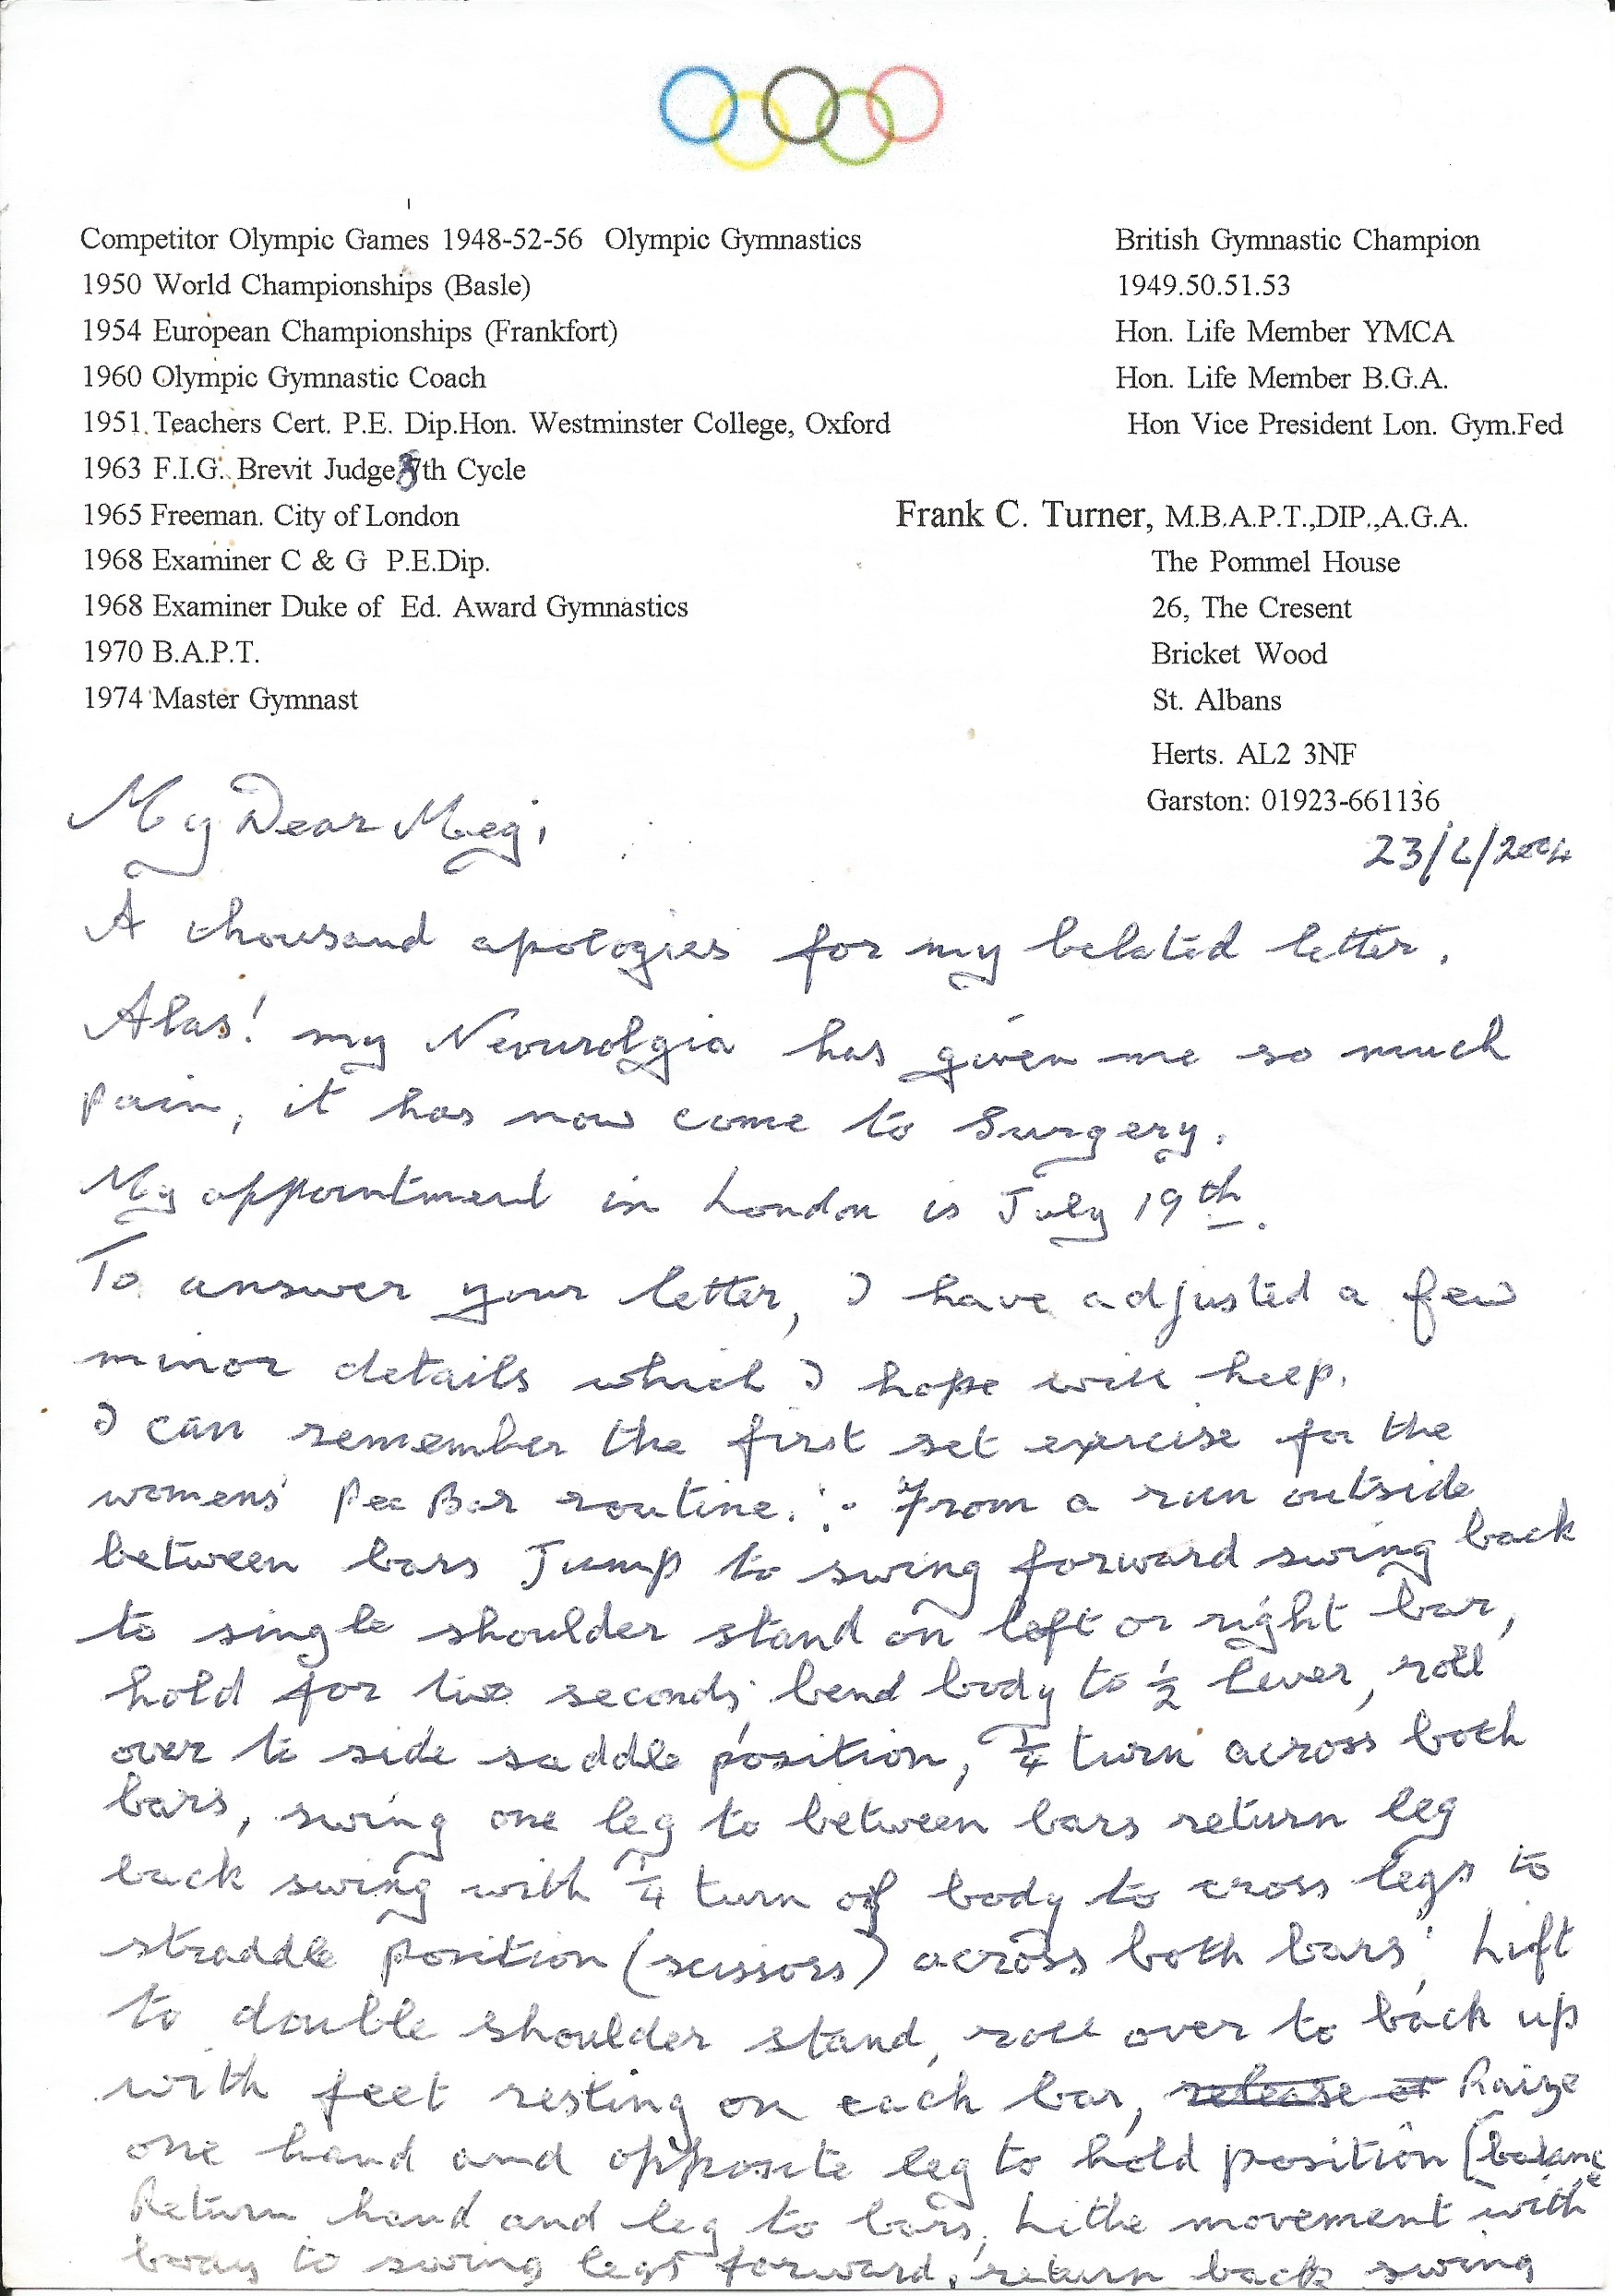 Competitor Olympic Games 1948-52-56 Olympic Gymnastics
1950 World Championships (Basle)
1954 European Championships (Frankfort)
1960 Olympic Gymnastic Coach
1951. Teachers Cert. P.E. Dip.Hon. Westminster College, Oxford
1963 F.I.G. Brevit Judge 8th Cycle
1965 Freeman. City of London
1968 Examiner C & G P.E.Dip.
1968 Examiner Duke of Ed. Award Gymnastics
1970 B.A.P.T.
1974 Master Gymnast
British Gymnastic Champion
1949.50.51.53
Hon. Life Member YMCA
Hon. Life Member B.G.A.
Hon Vice President Lon. Gym.Fed
Frank C. Turner, M.B.A.P.T.,DIP.,A.G.A.
The Pommel House
26, The Cresent
Bricket Wood
St. Albans
Herts. AL2 3NF
Garston: 01923-661136
23/6/2004
My Dear Meg,
A thousand apologies for my belated letter.
Alas! my Nevurolgia has given me so much
pain, it has now come to Surgery.
My appointment in London is July 19th.
To answer your letter, I have adjusted a few
minor details which I hope will help.
I can remember the first set exercise for the
womens' Par Bar routine. :- From a run outside
between bars Jump to swing forward swing back
to single shoulder stand on left or right bar,
hold for two seconds, bend body to ½ lever, roll
over to side saddle position, ¼ turn across both
bars, swing one leg to between bars return leg
back swing with ¼ turn of body to cross legs to
straddle position (scissors) across both bars; Lift
to double shoulder stand, roll over to back up
with feet resting on each bar, release at Raize
one hand and opposite leg to hold position (balance
Return hand and leg to bars, Lithe movement with
body to swing legs forward, return back swing